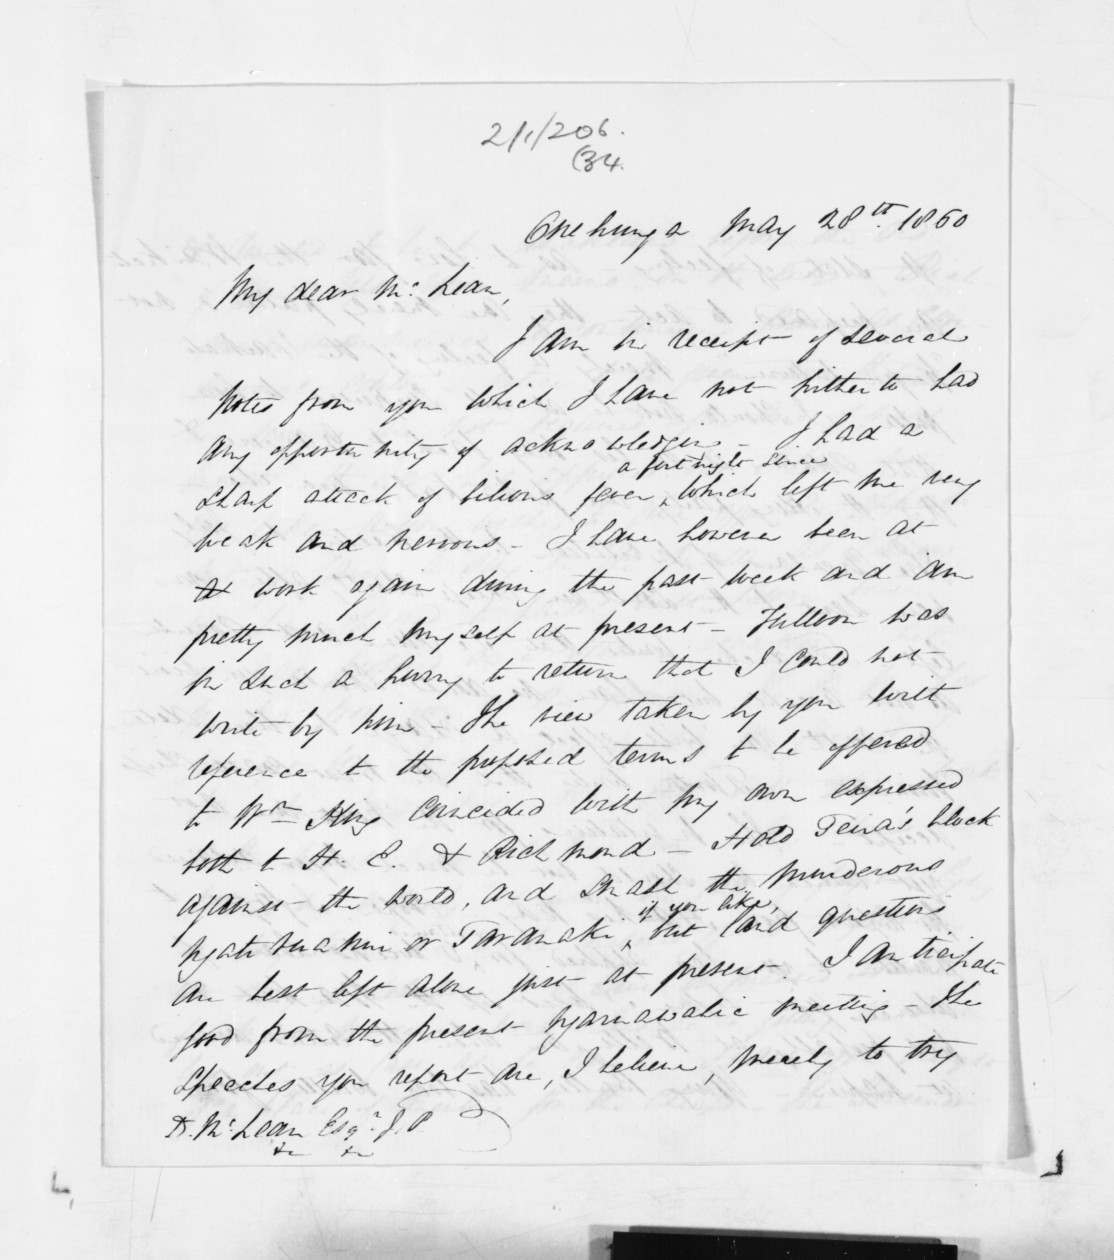 2/1/206.
(34.
Onehunga May 28th. 1860
My dear Mc. Lean,
I am in receipt of several
Notes from you which I have not hitherto had
any opportunity of acknowledging - I had a
a fortnight since
sharp attack of bilious fever, which left me very
weak and nervous - I have however been at
at work again during the past week and am
pretty much myself at present - Fulloon was
in such a hurry to return that I could not
write by him - The view taken by you with
reference to the proposed terms to be offered
to Wm King coincided with my own expressed
both to H. E. & Richmond - Hold Teira's block
against the world, and smash the murderous
if you like,
Ngatiruanui or Taranaki, but land questions
are best left alone just at present. I anticipate
good from the present Ngaruawahia meeting - The
speeches you report are, I believe, merely to try
D. Mc. Lean Esqr. J.P.
&c &c